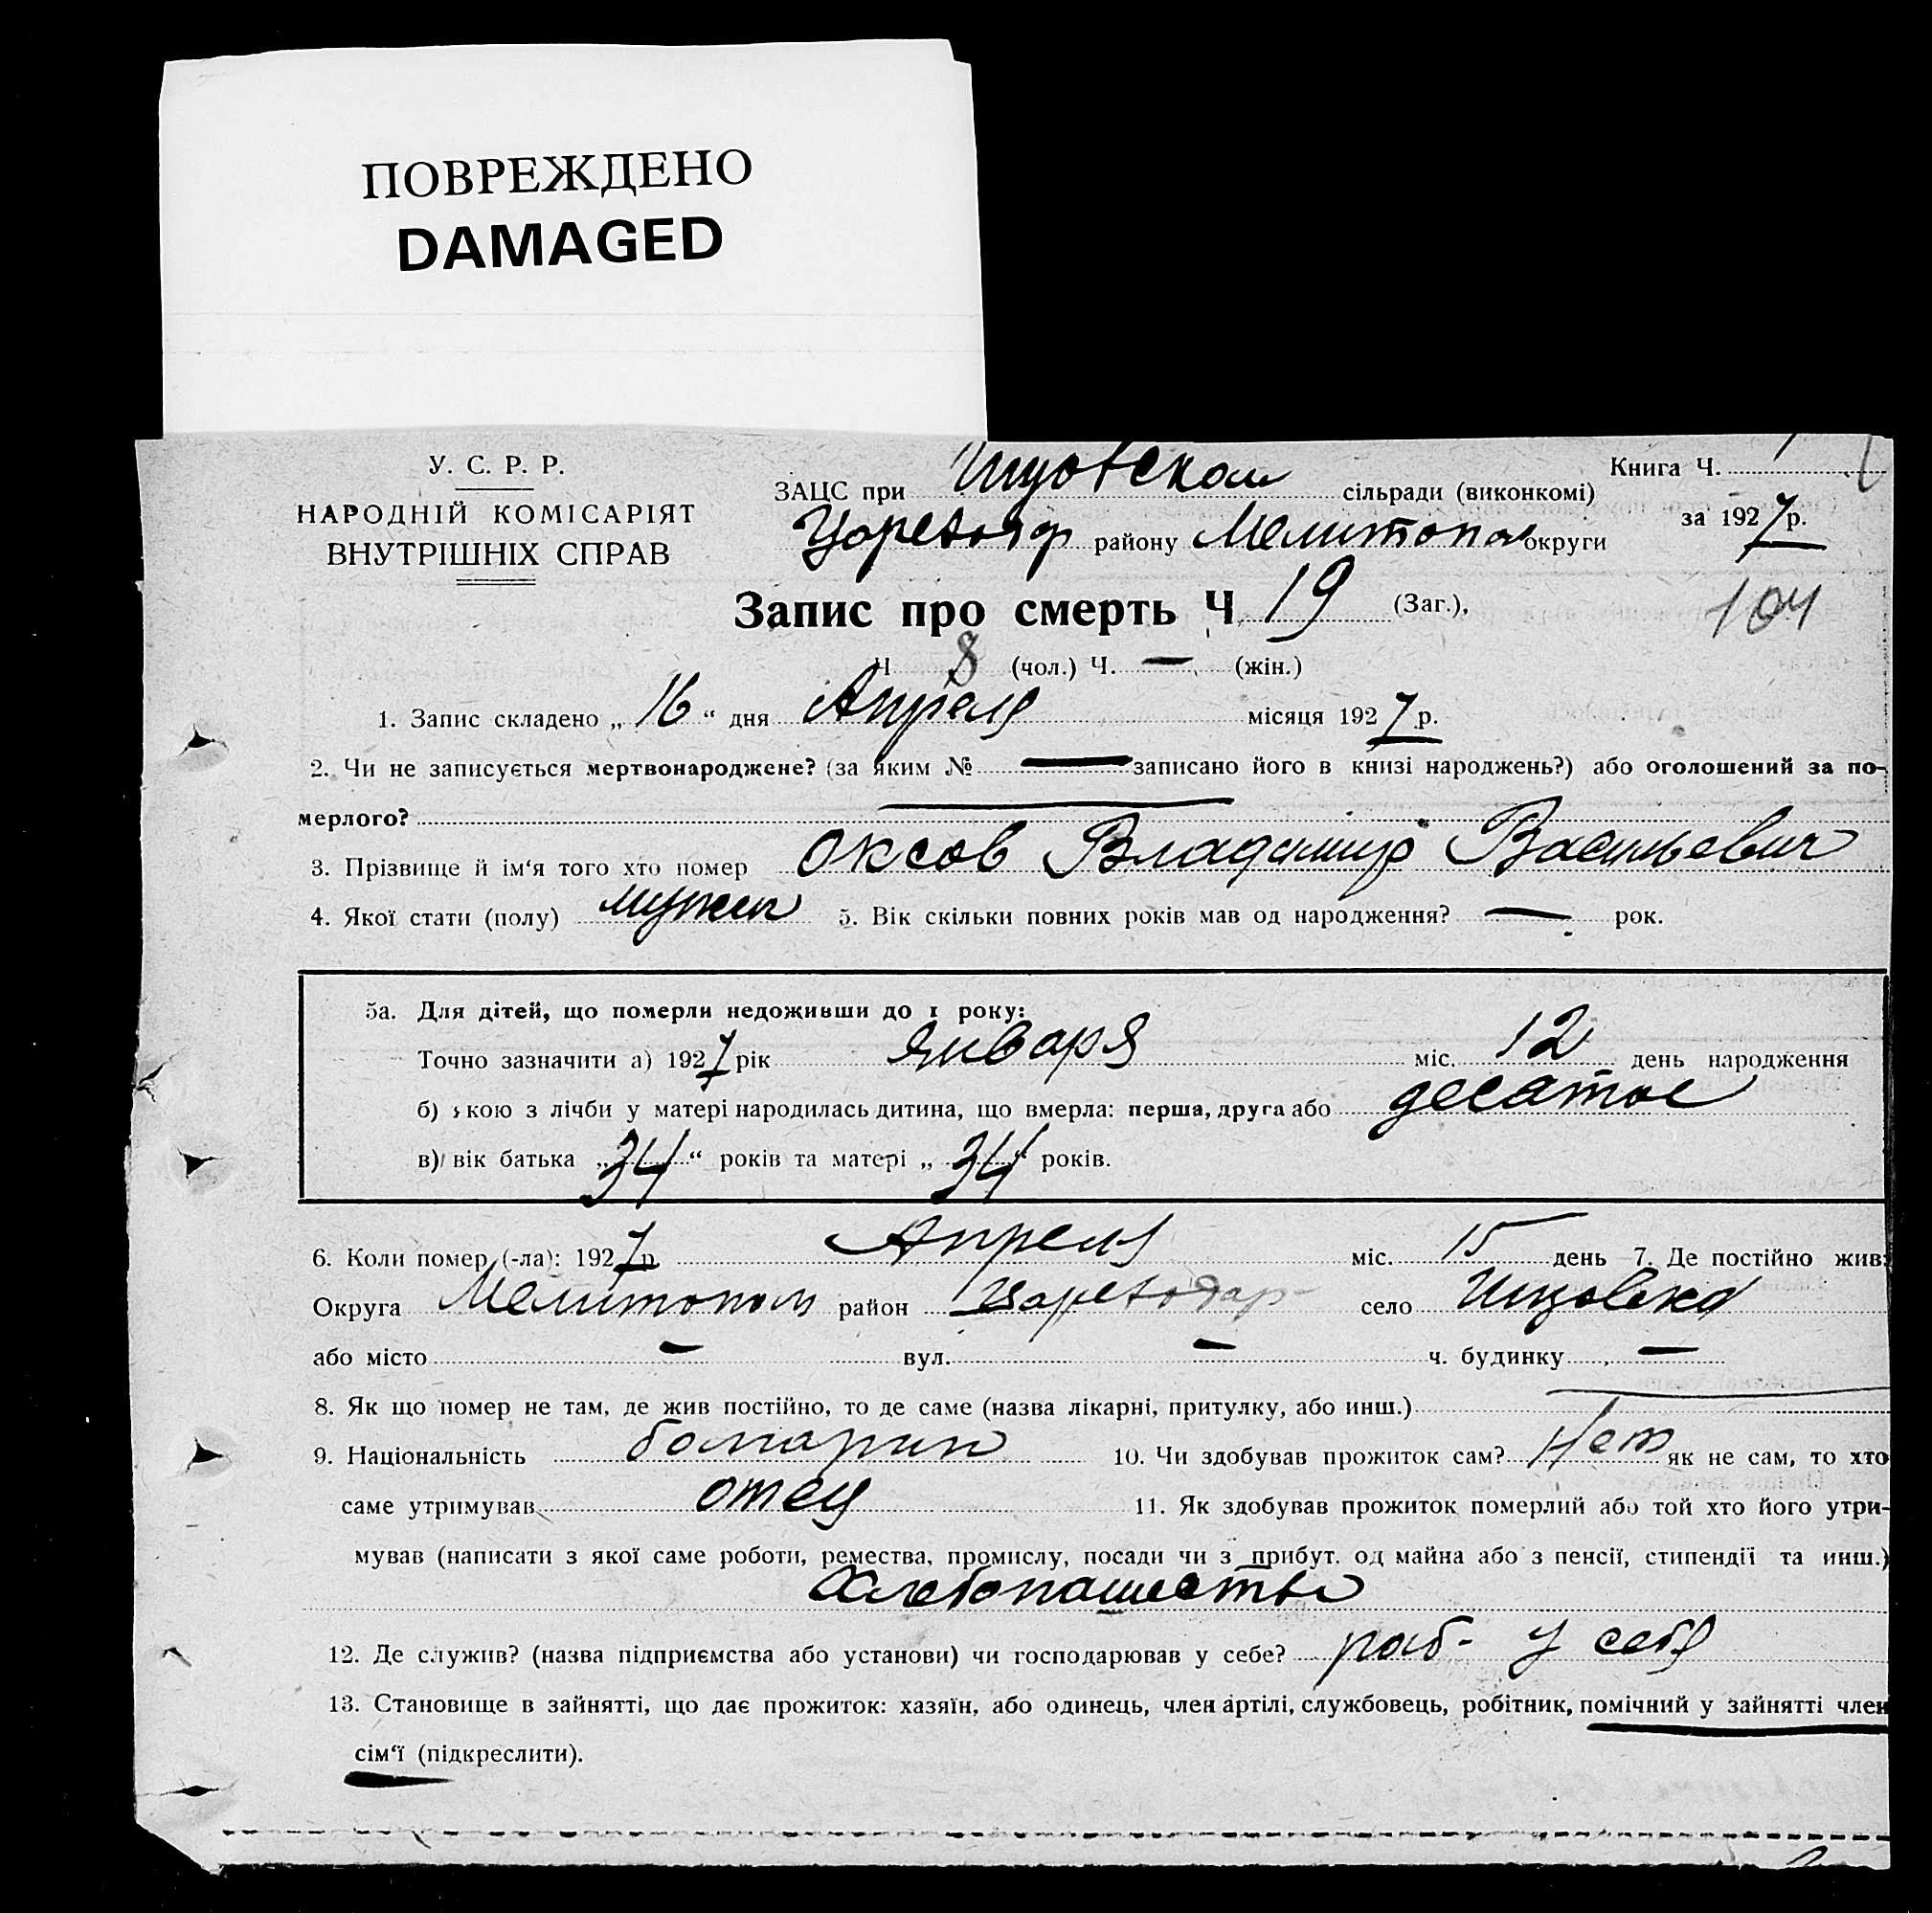 ПОВРЕЖДЕНО
DAMAGED
У. С. Р. Р.
НАРОДНІЙ КОМІСАРІЯТ
ВНУТРІШНІХ СПРАВ
Книга Ч. 1
ЗАЦС при сільради (виконкомі)
за 1927 р.
району Мелитопол округи
Запис про смерть Ч 19 (Заг.),
104
Ч 8 (чол.) Ч. — (жін.)
1. Запис складено „16“ дня Апреля місяця 1927 р.
2. Чи не записується мертвонароджене? (за яким № — записано його в книзі народжень?) або оголошений за по-
мерлого? —
3. Прізвище й ім‘я того хто помер Оксов Владимир Васильевич
4. Якої стати (полу) мужск 5. Вік скільки повних років мав од народження? — рок.
5а. Для дітей, що померли недоживши до 1 року:
Точно зазначити а) 1927 рік Января міс. 12 день народження
б) якою з лічби у матері народилась дитина, що вмерла: перша, друга або десятое
в) вік батька „34“ років та матері „34“ років.
6. Коли помер (-ла): 1927 р. Апреля міс. 15 день 7. Де постійно жив:
Округа Мелитопол район Цареводар- село
або місто — вул. — ч. будинку —
8. Як що помер не там, де жив постійно, то де саме (назва лікарні, притулку, або инш.) —
9. Національність болгарин 10. Чи здобував прожиток сам? Нет як не сам, то хто
саме утримував отец 11. Як здобував прожиток померлий або той хто його утри-
мував (написати з якої саме роботи, ремества, промислу, посади чи з прибут. од майна або з пенсії, стипендії та инш.)
Хлебопашество
12. Де служив? (назва підприємства або установи) чи господарював у себе? раб- у себя
13. Становище в зайнятті, що дає прожиток: хазяїн, або одинець, член артілі, службовець, робітник, помічний у зайнятті член
сім‘ї (підкреслити).